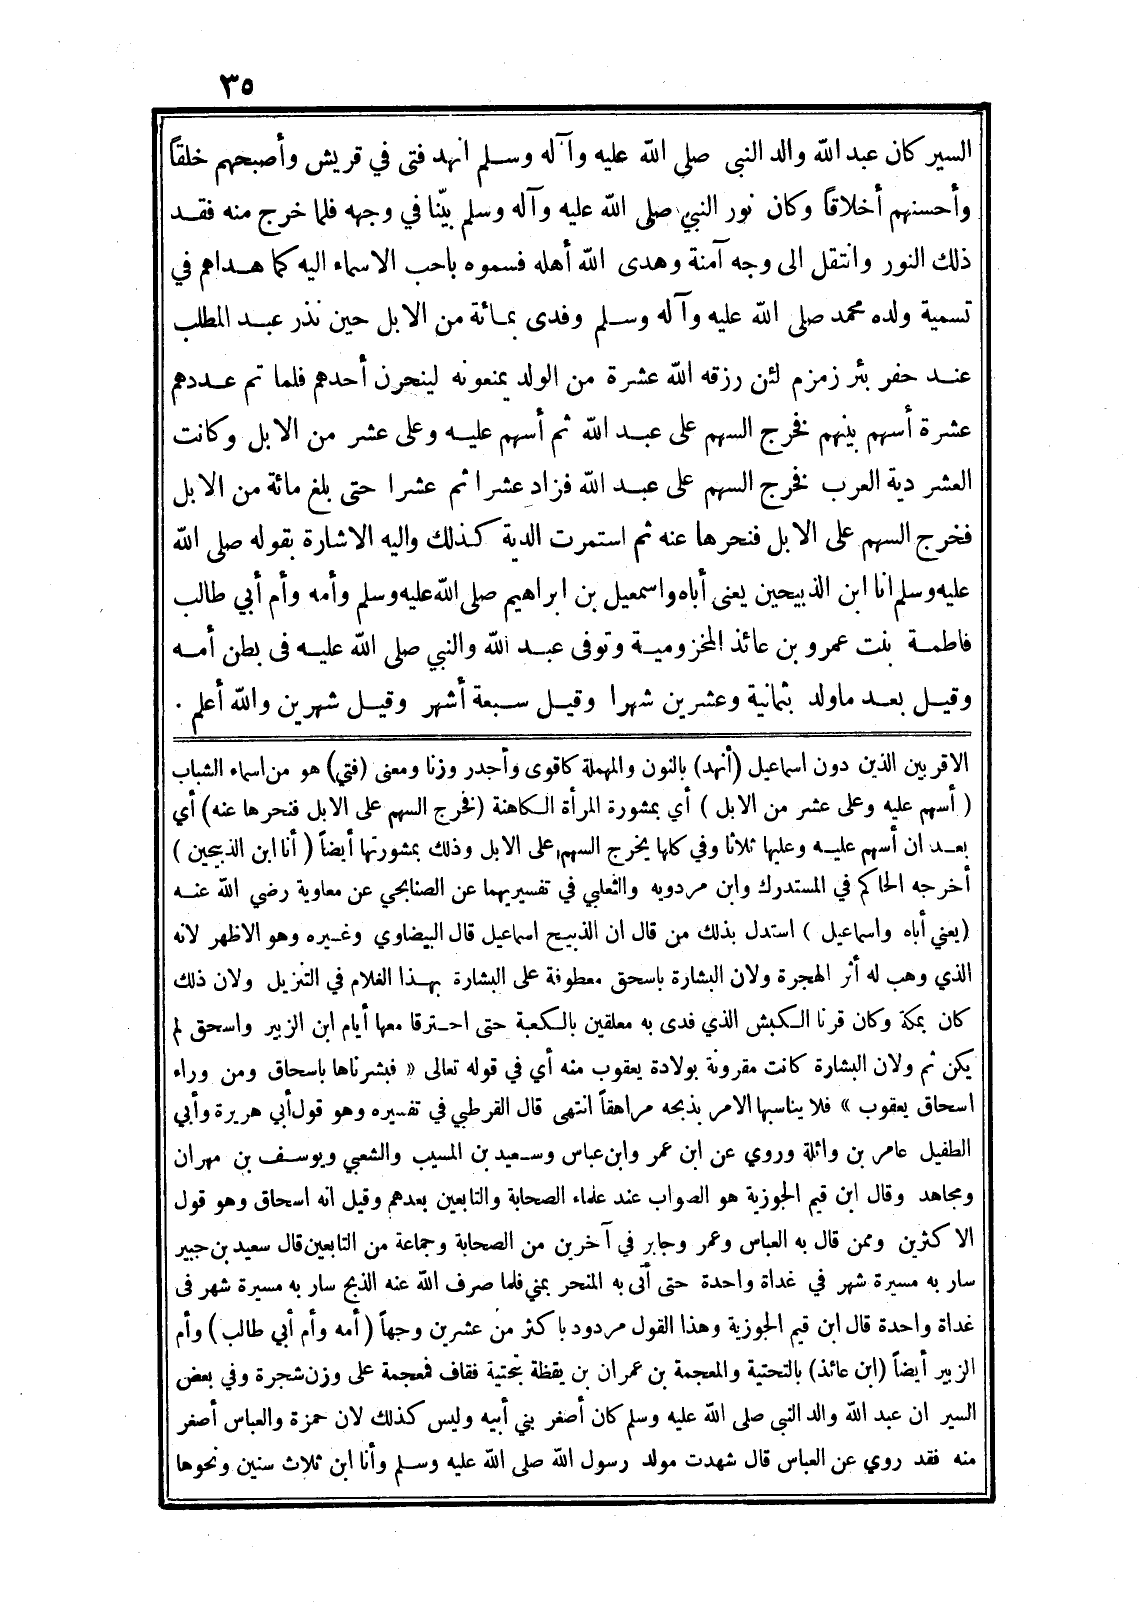 ٣٥
السير كان عبد الله والد النبي صلى الله عليه وآله وسلم انهد فتى في قريش وأصبحهم خلقاً
وأحسنهم أخلاقاً وكان نور النبي صلى الله عليه وآله وسلم بيّنا في وجهه فلما خرج منه فقد
ذلك النور وانتقل الى وجه آمنة وهدى الله أهله فسموه باحب الاسماء اليه كما هداهم في
تسمية ولده محمد صلى الله عليه وآله وسلم وفدى بمائة من الابل حين نذر عبد المطلب
عند حفر بئر زمزم لئن رزقه الله عشرة من الولد يمنعونه لينحرن أحدهم فلما تم عددهم
عشرة أسهم بينهم فخرج السهم على عبد الله ثم أسهم عليه وعلى عشر من الابل وكانت
العشر دية العرب فخرج السهم على عبد الله فزاد عشرا ثم عشرا حتى بلغ مائة من الابل
فخرج السهم على الابل فنحرها عنه ثم استمرت الدية كذلك واليه الاشارة بقوله صلى الله
عليه وسلم انا ابن الذبيحين يعنى أباه واسمعيل بن ابراهيم صلى الله عليه وسلم وأمه وأم أبي طالب
فاطمة بنت عمرو بن عائذ المخزومية وتوفى عبد الله والنبي صلى الله عليه فى بطن أمه
وقيل بعد ماولد بثمانية وعشرين شهرا وقيل سبعة أشهر وقيل شهرين والله أعلم .
الاقربين الذين دون اسماعيل (أنهد) بالنون والمهملة كاقوى وأجدر وزنا ومعنى (فتي) هو من اسماء الشباب
( أسهم عليه وعلى عشر من الابل ) أي بمشورة المرأة الكاهنة (فخرج السهم على الابل فنحرها عنه) أي
بعد ان أسهم عليه وعليها ثلاثا وفي كلها يخرج السهم على الابل وذلك بمشورتها أيضاً ( أنا ابن الذبيحين )
أخرجه الحاكم في المستدرك وابن مردويه والثعلبي في تفسيريهما عن الصنابحي عن معاوية رضي الله عنه
(يعني أباه واسماعيل ) استدل بذلك من قال ان الذبيح اسماعيل قال البيضاوي وغيره وهو الاظهر لانه
الذي وهب له أثر الهجرة ولان البشارة باسحق معطوفة على البشارة بهذا الغلام في التنزيل ولان ذلك
كان بمكة وكان قرنا الكبش الذي فدى به معلقين بالكعبة حتى احترقا معها أيام ابن الزبير واسحق لم
يكن ثم ولان البشارة كانت مقرونة بولادة يعقوب منه أي في قوله تعالى « فبشرناها باسحاق ومن وراء
اسحاق يعقوب » فلا يناسبها الامر بذبحه مراهقاً انتهى قال القرطبي في تفسيره وهو قول أبي هريرة وأبي
الطفيل عامر بن واثلة وروي عن ابن عمر وابن عباس وسعيد بن المسيب والشعبي ويوسف بن مهران
ومجاهد وقال ابن قيم الجوزية هو الصواب عند علماء الصحابة والتابعين بعدهم وقيل انه اسحاق وهو قول
الاكثرين وممن قال به العباس وعمر وجابر في آخرين من الصحابة وجماعة من التابعين قال سعيد بن جبير
سار به مسيرة شهر في غداة واحدة حتى أتى به المنحر بمني فلما صرف الله عنه الذبح سار به مسيرة شهر فى
غداة واحدة قال ابن قيم الجوزية وهذا القول مردود باكثر من عشرين وجهاً ( أمه وأم أبي طالب ) وأم
الزبير أيضاً (ابن عائذ) بالتحتية والمعجمة بن عمران بن يقظة بتحتية فقاف فمعجمة على وزن شجرة وفي بعض
السير ان عبد الله والد النبي صلى الله عليه وسلم كان أصغر بني أبيه وليس كذلك لان حمزة والعباس أصغر
منه فقد روي عن العباس قال شهدت مولد رسول الله صلى الله عليه وسلم وأنا ابن ثلاث سنين ونحوها